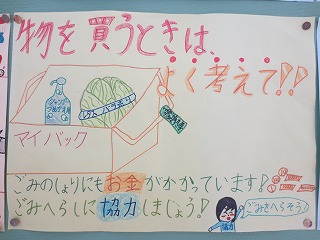 物を買うときは、
よく考えて!!
シャンプー
つめかえ用
レタス バラ売り
マイバック
ごみのしょりにもお金がかかっています!
ごみへらしに協力しましょう!
ごみをへらそう!
協力